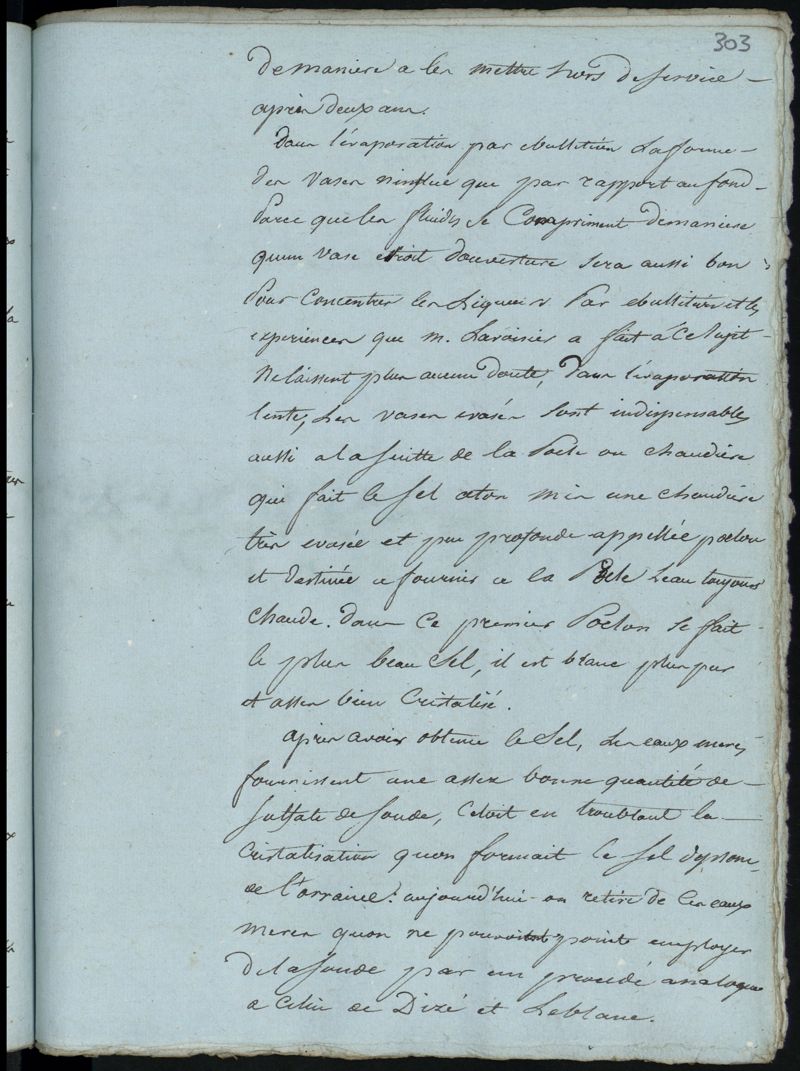 303
de maniere a les mettre hors de service
après deux ans.
Dans l'évaporation par ebullition la forme
des vases n'influe que par rapport au fond
Parce que les fluides se Compriment de maniere
quun vase etroit douverture sera aussi bon
Pour Concentrer les Liqueurs Par ebullition et les
experiences que m. Lavoisier a fait à Ce Sujet
Ne laissent plus aucun doute, Dans l'évaporation
lente, Les vases evasés sont indispensables
aussi a la suitte de la Poele ou chaudiere
qui fait le sel aton mis une chaudiere
très evasée et peu profonde appellée poelon
et destinée a fournir a la Poele Leau toujours
chaude. Dans Ce premier Poelon se fait
le plus beau Sel, il est blanc plus pur
et assez bien Cristalisé.
après avoir obtenu le Sel, Les eaux meres
fournissent une assez bonne quantité de
Sulfate de Soude, Cetoit en troublant la
Cristalisation quon formait le Sel depsom
de l'orraine. aujourd'hui on retire de Ces eaux
meres quon ne pouvoit point employer
De la Soude par un procédé analogue
a Celui de Dizé et Leblanc.